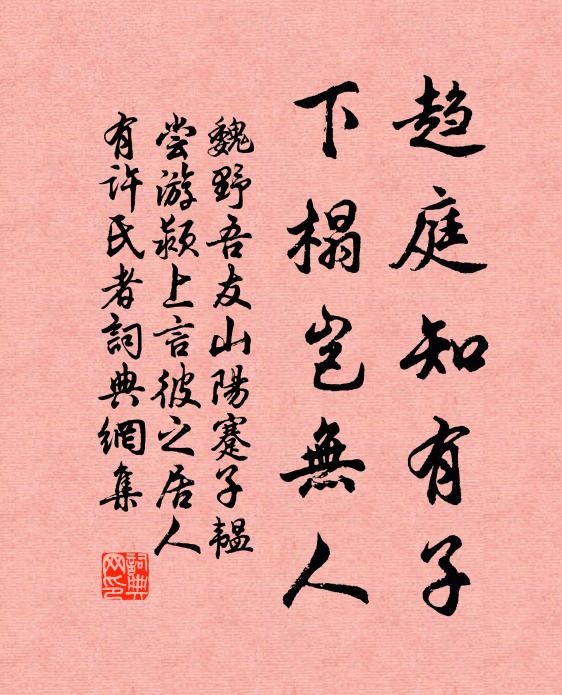 趨庭知有子
下榻豈無人
魏野吾友山陽蹇子韞
嘗游潁上言彼之居人
有許氏者詞典網集
詞典
网印